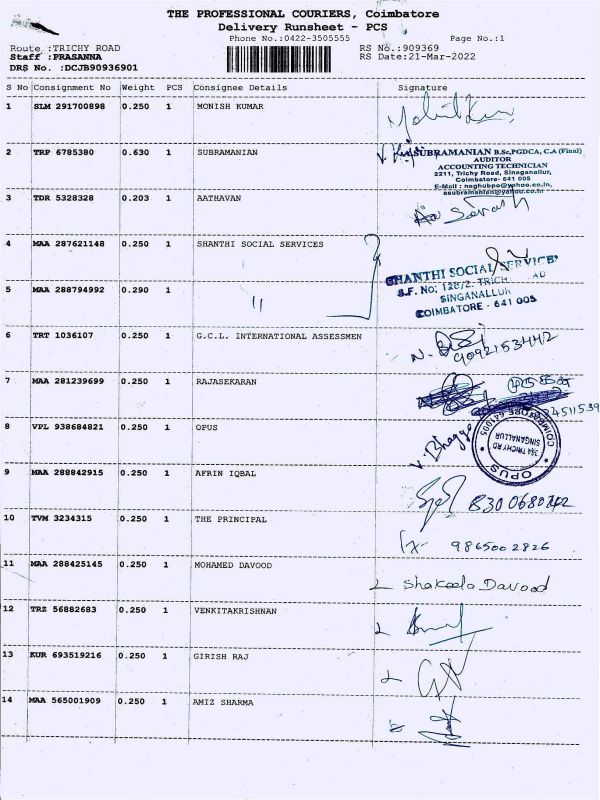 THE PROFESSIONAL COURIERS, Coimbatore
Delivery Runsheet - PCS
Phone No.:0422-3505555 Page No.:1
Route :TRICHY ROAD RS No.:909369
Staff :PRASANNA RS Date:21-Mar-2022
DRS No. :DCJB90936901
S No Consignment No Weight PCS Consignee Details Signature
1 SLM 291700898 0.250 1 MONISH KUMAR
2 TRP 6785380 0.630 1 SUBRAMANIAN
SUBRAMANIAN B.Sc,PGDCA, C.A (Final)
AUDITOR
ACCOUNTING TECHNICIAN
2211, Trichy Road, Singanallur,
Coimbatore- 641 005
E-Mail : naghubpo@yahoo.co.in,
asubramanian@yahoo.co.in
3 TDR 5328328 0.203 1 AATHAVAN
4 MAA 287621148 0.250 1 SHANTHI SOCIAL SERVICES
SHANTHI SOCIAL SERVICES
S.F. No;
SINGANALLUR
COIMBATORE - 641 005
5 MAA 288794992 0.290 1 "
6 TRT 1036107 0.250 1 G.C.L. INTERNATIONAL ASSESSMEN
9092153442
7 MAA 281239699 0.250 1 RAJASEKARAN
8 VPL 938684821 0.250 1 OPUS
V. Bhagya
OPUS
384 TRICHY RD
SINGANALLUR
COIMBATORE 641005
9 MAA 288842915 0.250 1 AFRIN IQBAL
10 TVM 3234315 0.250 1 THE PRINCIPAL
9865002826
11 MAA 288425145 0.250 1 MOHAMED DAVOOD
Shakeela Davood
12 TRZ 56882683 0.250 1 VENKITAKRISHNAN
13 KUR 693519216 0.250 1 GIRISH RAJ
14 MAA 565001909 0.250 1 AMIZ SHARMA